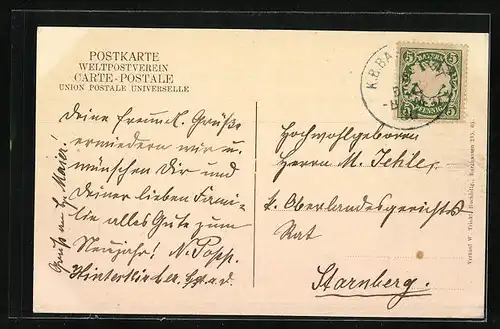 POSTKARTE
WELTPOSTVEREIN
CARTE-POSTALE
UNION POSTALE UNIVERSELLE
K.B.BA
5 BAYERN 5
5 PFENNIG 5
Deine freundl. Grüße
erwiedern wir u.
wünschen Dir und
Deiner lieben Fami-
lie alles Gute zum
Neujahr! N. Popp.
Gruß an H. Maier!
Hochwohlgeboren
Herrn M. Jehle,
k. Oberlandesgerichts
Rat
Starnberg.
Verlag W.